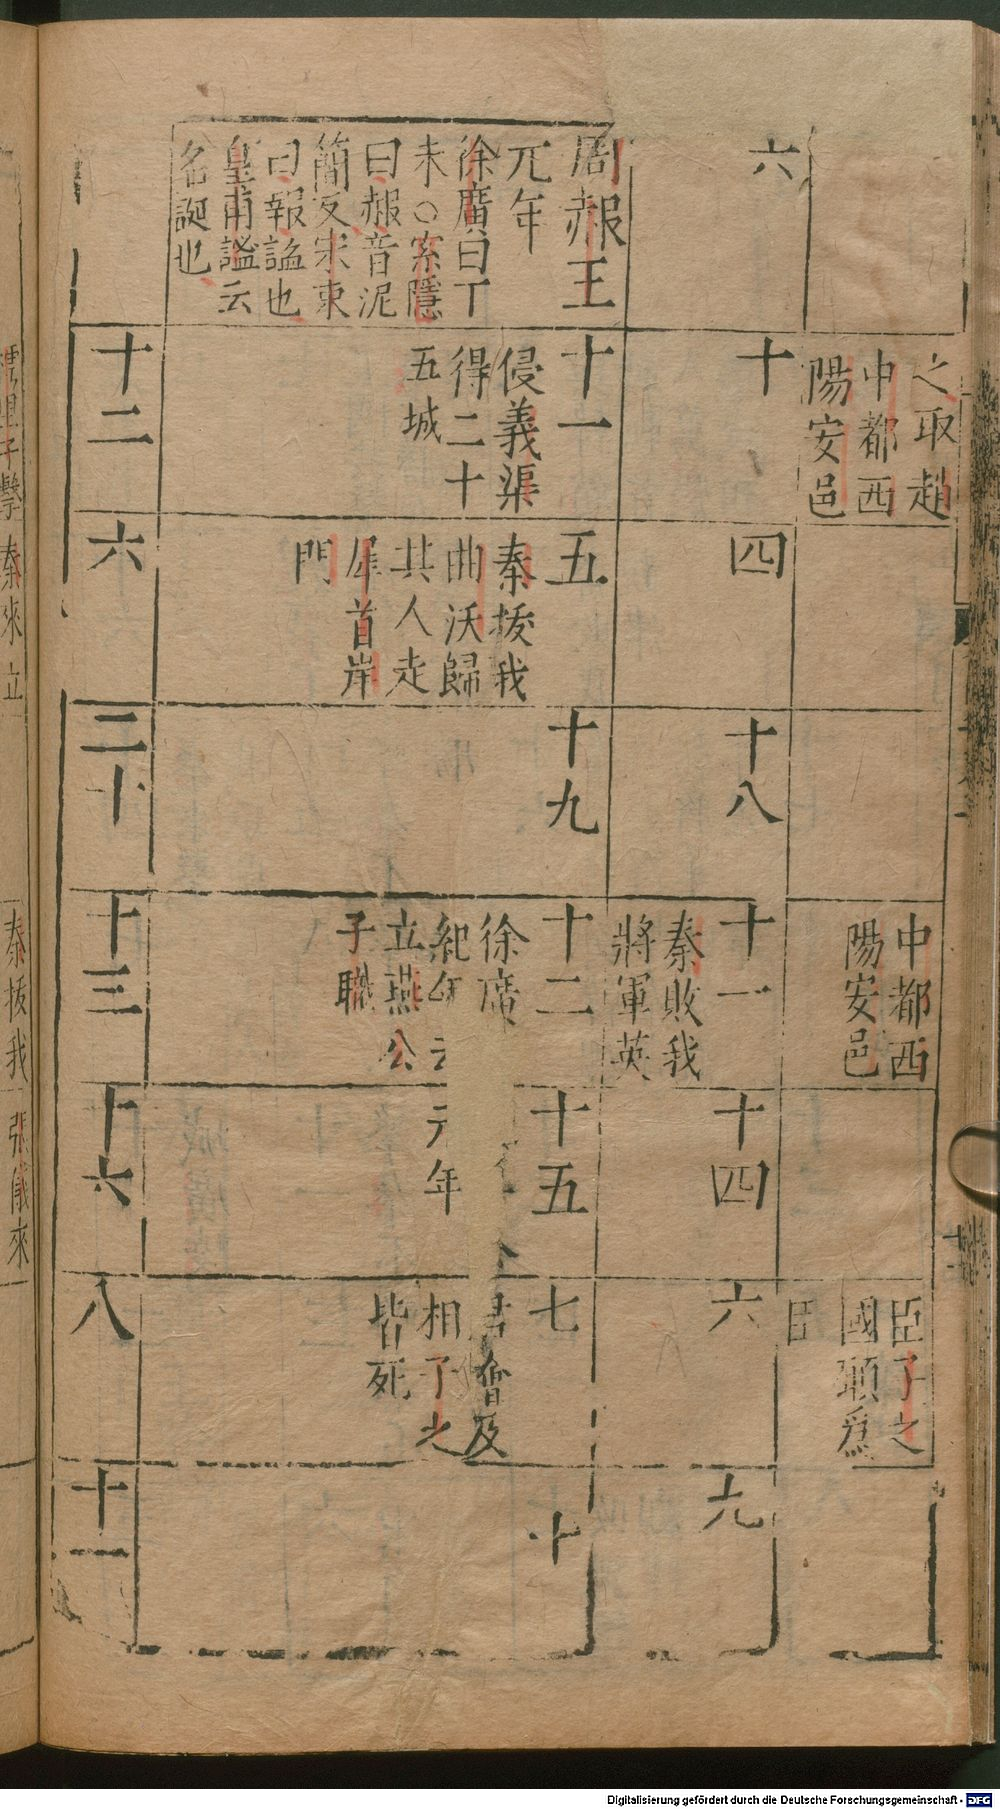 之取趙
中都西
陽安邑
中都西
陽安邑
臣子之
國顧爲
臣
六
十
四
十八
十一
秦敗我
將軍英
十四
六
九
周赧王
元年
徐廣曰丁
未○索隱
曰赧音泥
簡反宋衷
曰赧謚也
皇甫謐云
名誕也
十一
侵義渠
得二十
五城
五
秦拔我
曲沃歸
其人走
犀首岸
門
十九
十二
徐廣
紀年云
立燕公
子職
十五
元年
七
君噲及
相子之
皆死
十
十二
六
二十
十三
十六
八
十一
里子擊
秦來立
秦拔我
張儀來
Digitalisierung gefördert durch die Deutsche Forschungsgemeinschaft - DFG